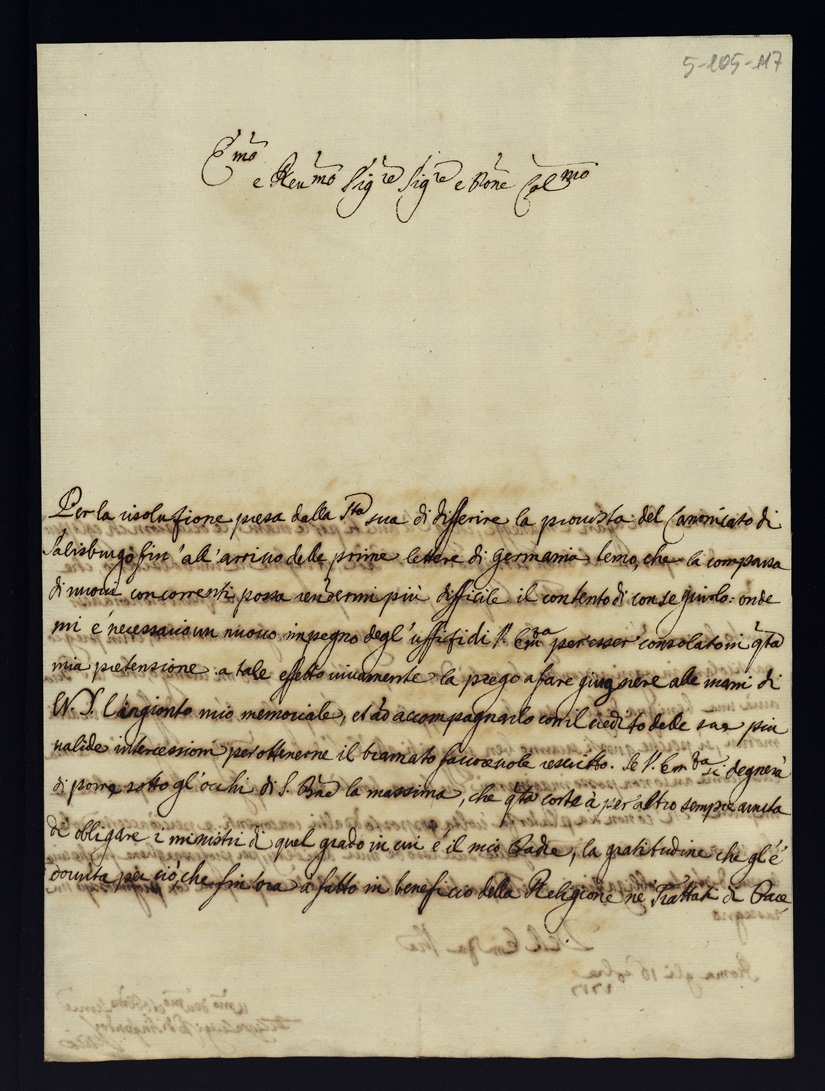 5-105-117
E.mo
e Reu.mo Sig.re Sig.re e Pr̄one Col.mo
Per la risoluzione presa dalla S.tà sua di differire la prouista del Canonicato di
Salisburgo fin' all'arriuo delle prime lettere di Germania temo, che la comparsa
di nuoui concorrenti possa rendermi più difficile il contento di conseguirlo: onde
mi è necessario un nuouo impegno degl'uffizi di V. Em.za per esser consolato in q.ta
mia pretensione: a tale effetto uiuamente la prego a fare giugnere alle mani di
N. S. l'ingionto mio memoriale, et ad accompagnarlo con il credito delle sue più
ualide intercessioni per ottenerne il bramato fauoreuole rescritto. Se V. Em.za si degnerà
di porre sotto gl'occhi di S. B.ne la massima, che q.ta corte à per altro sempre auuta
di obligare i ministri di quel grado in cui è il mio Padre, la gratitudine che gl'è
douuta per ciò, che fin'ora à fatto in beneficio della Religione ne Trattati di Pace,